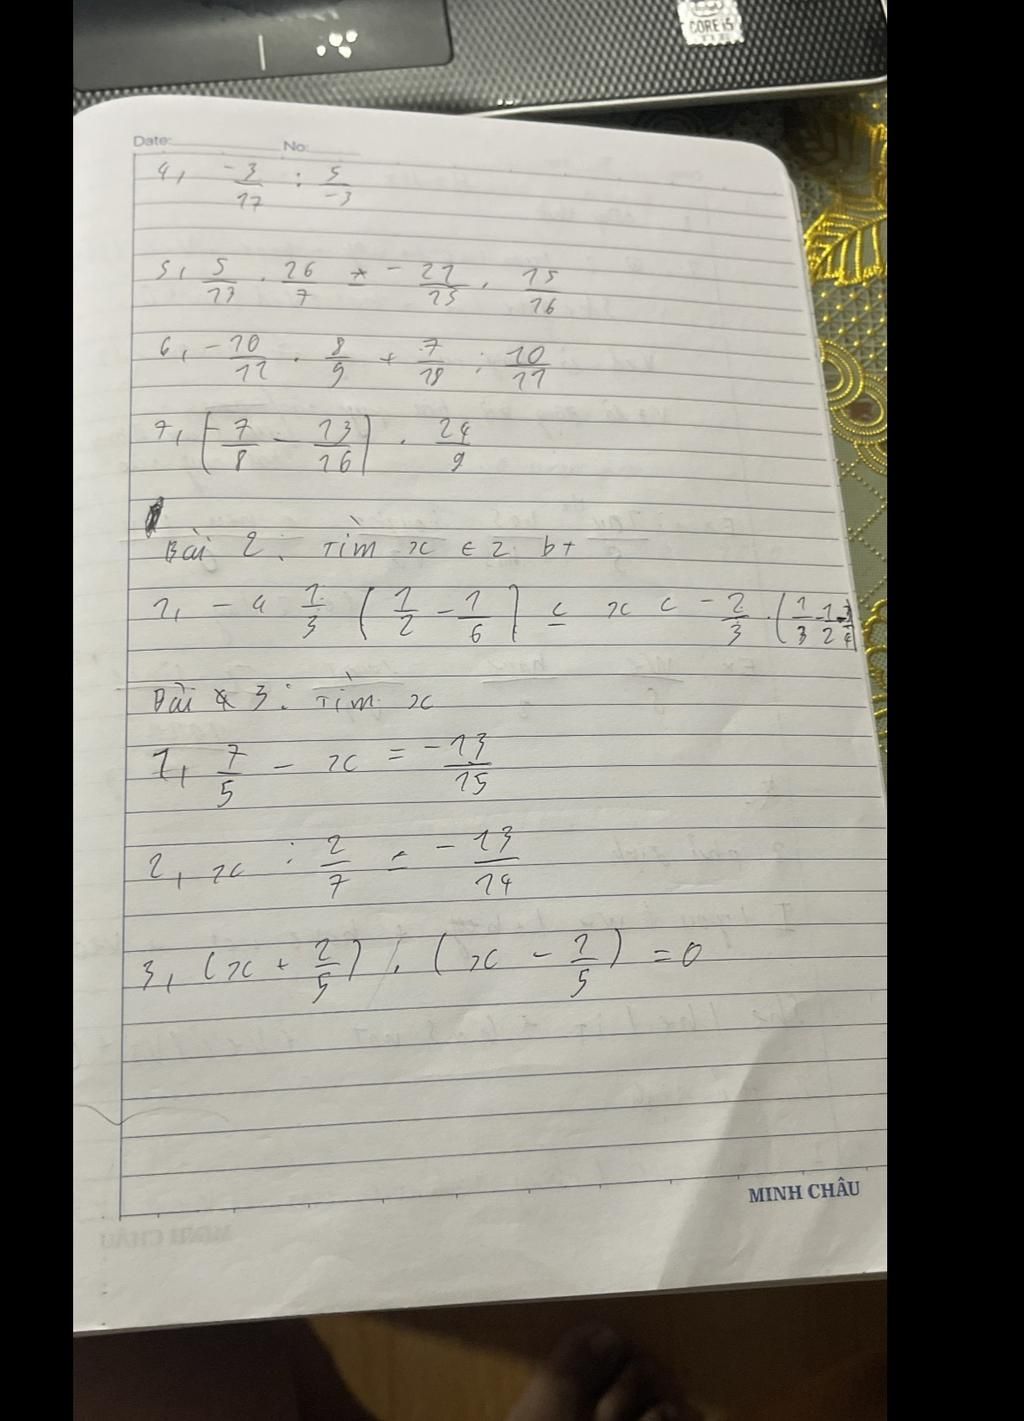 CORE i5
Date: No:
4, -3/17 : 5/-3
5, 5/13 . 26/7 + -21/25 . 15/16
6, -10/11 . 8/9 + 7/18 : 10/11
7, (-7/8 - 13/16) . 24/9
Bài 2: Tìm x ∈ Z bt
1, -4 1/3 (1/2 - 1/6) ≤ x < -2/3 . (1/3 - 1/2 - 3/4)
Bài 3: Tìm x
1, 7/5 - x = -13/15
2, x : 2/7 = -13/14
3, (x + 2/5) . (x - 2/5) = 0
MINH CHÂU